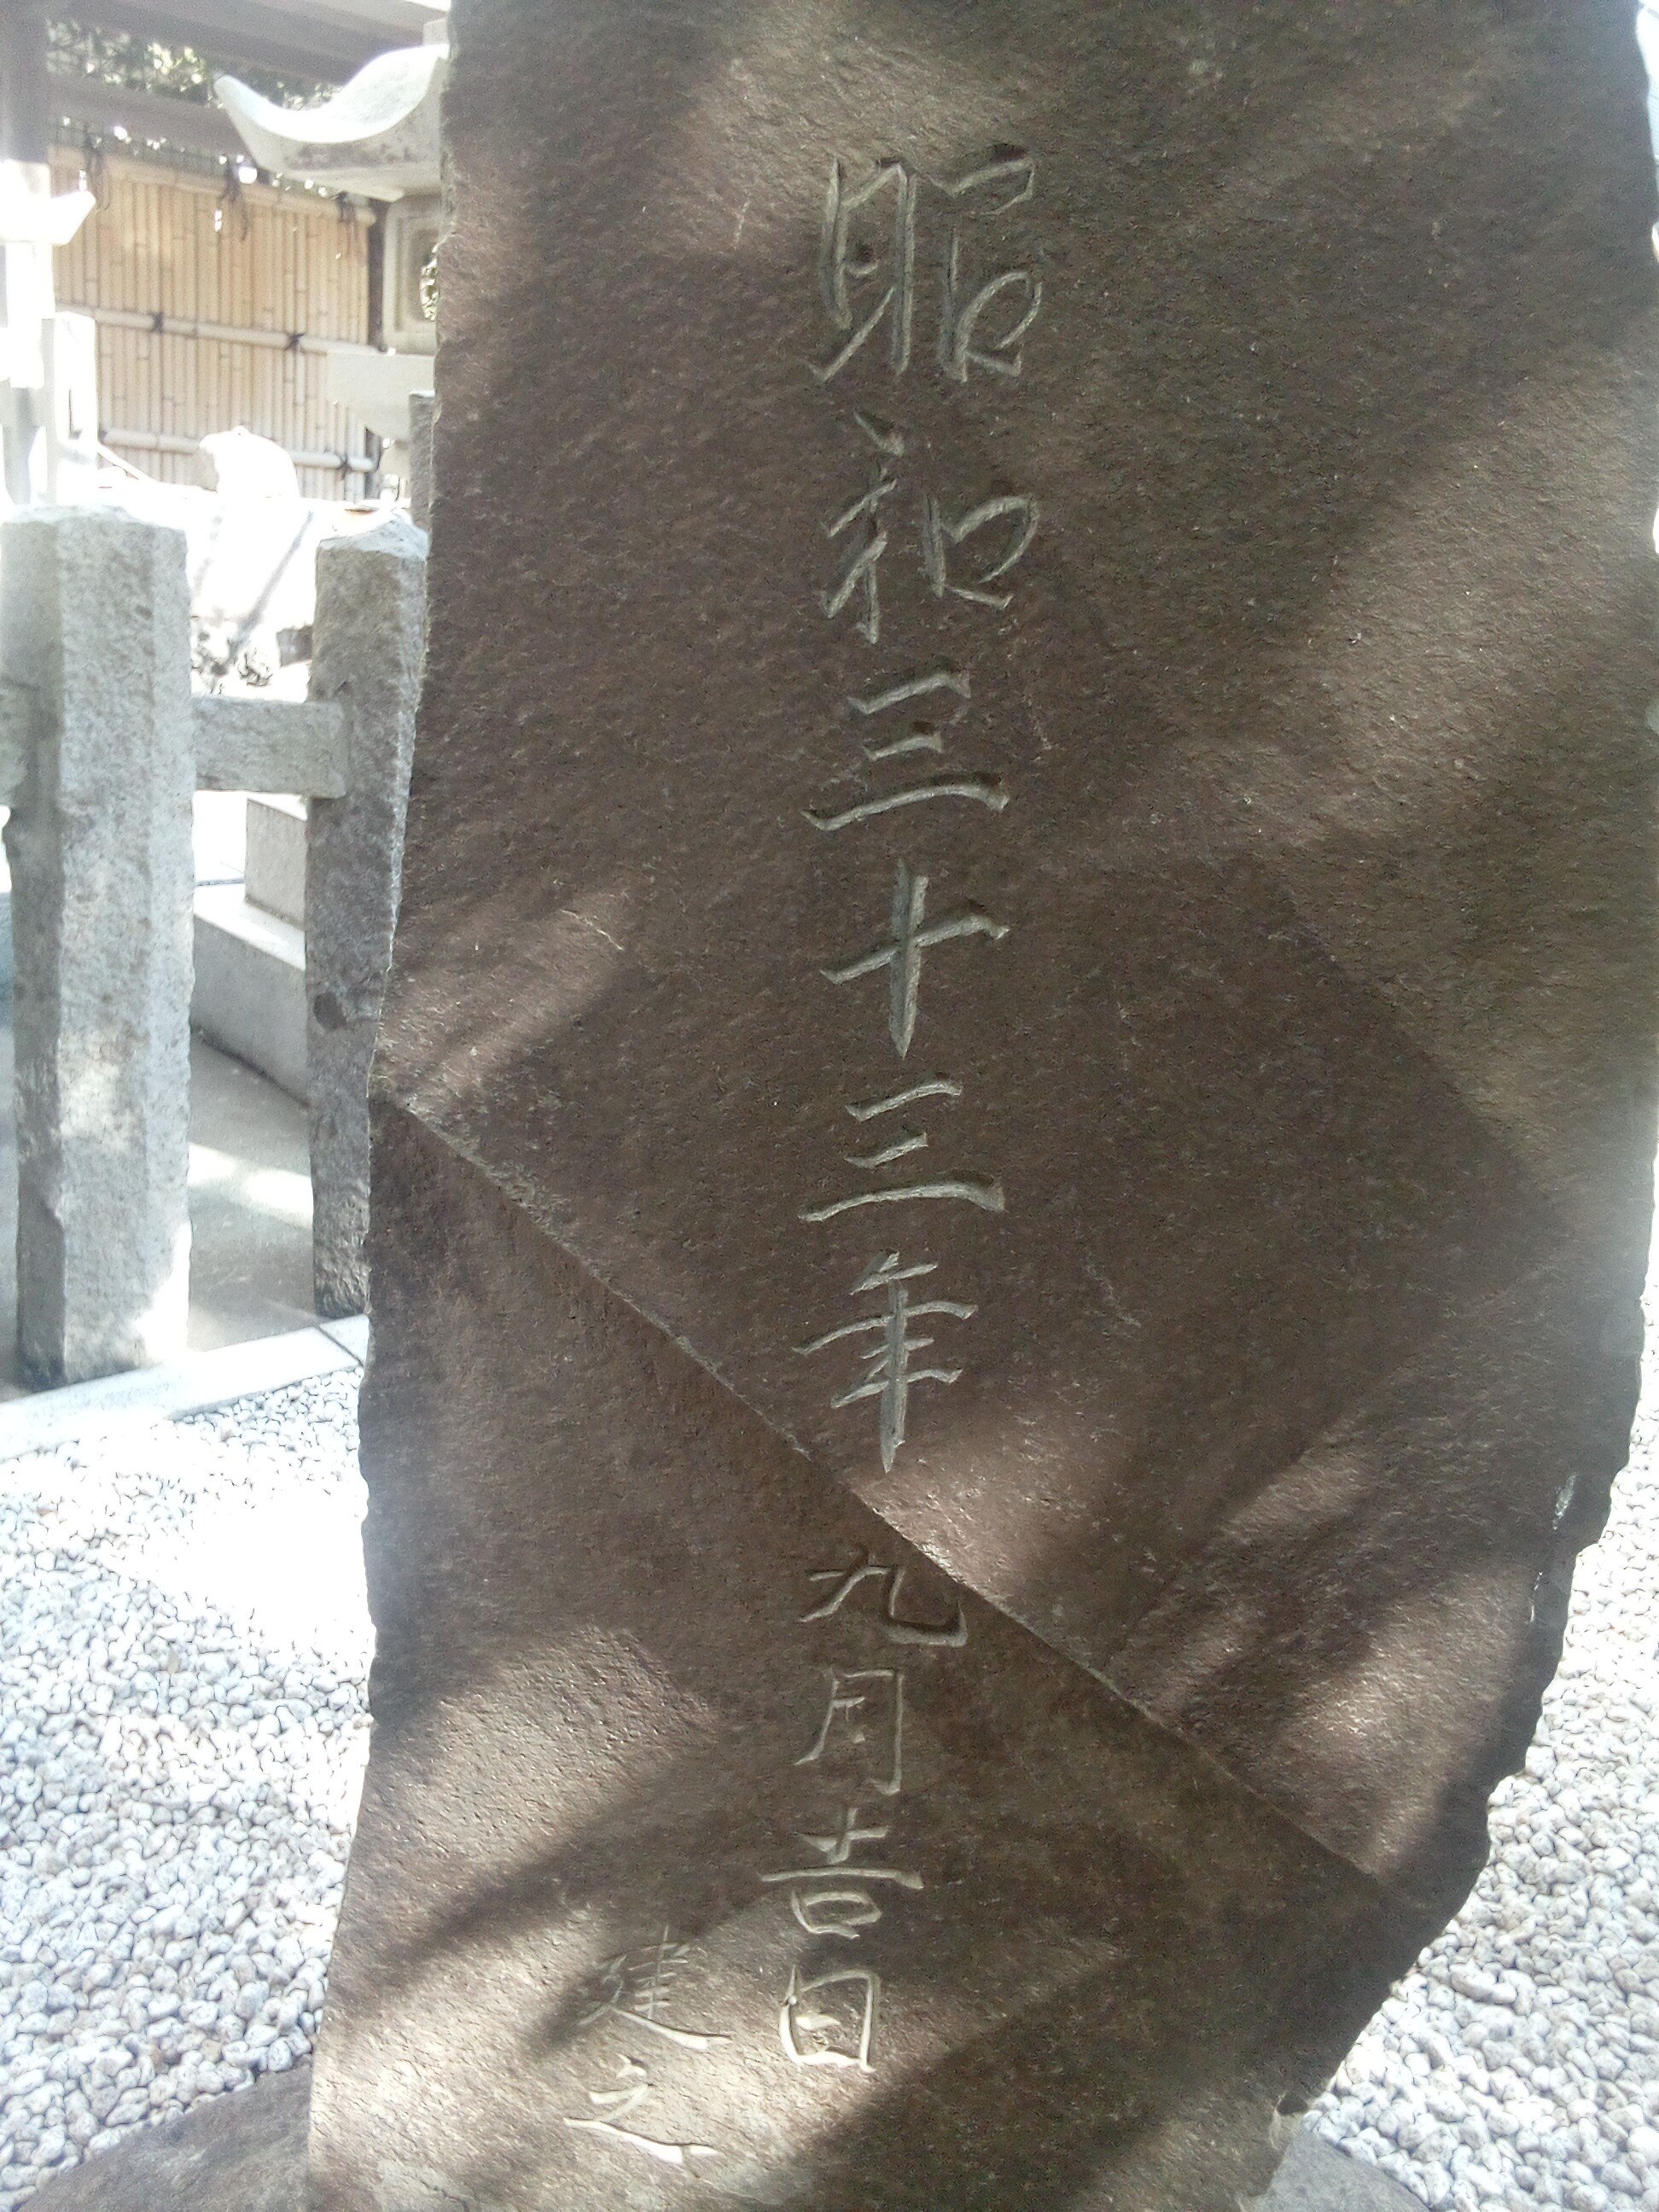 昭和三十三年九月吉日
建之